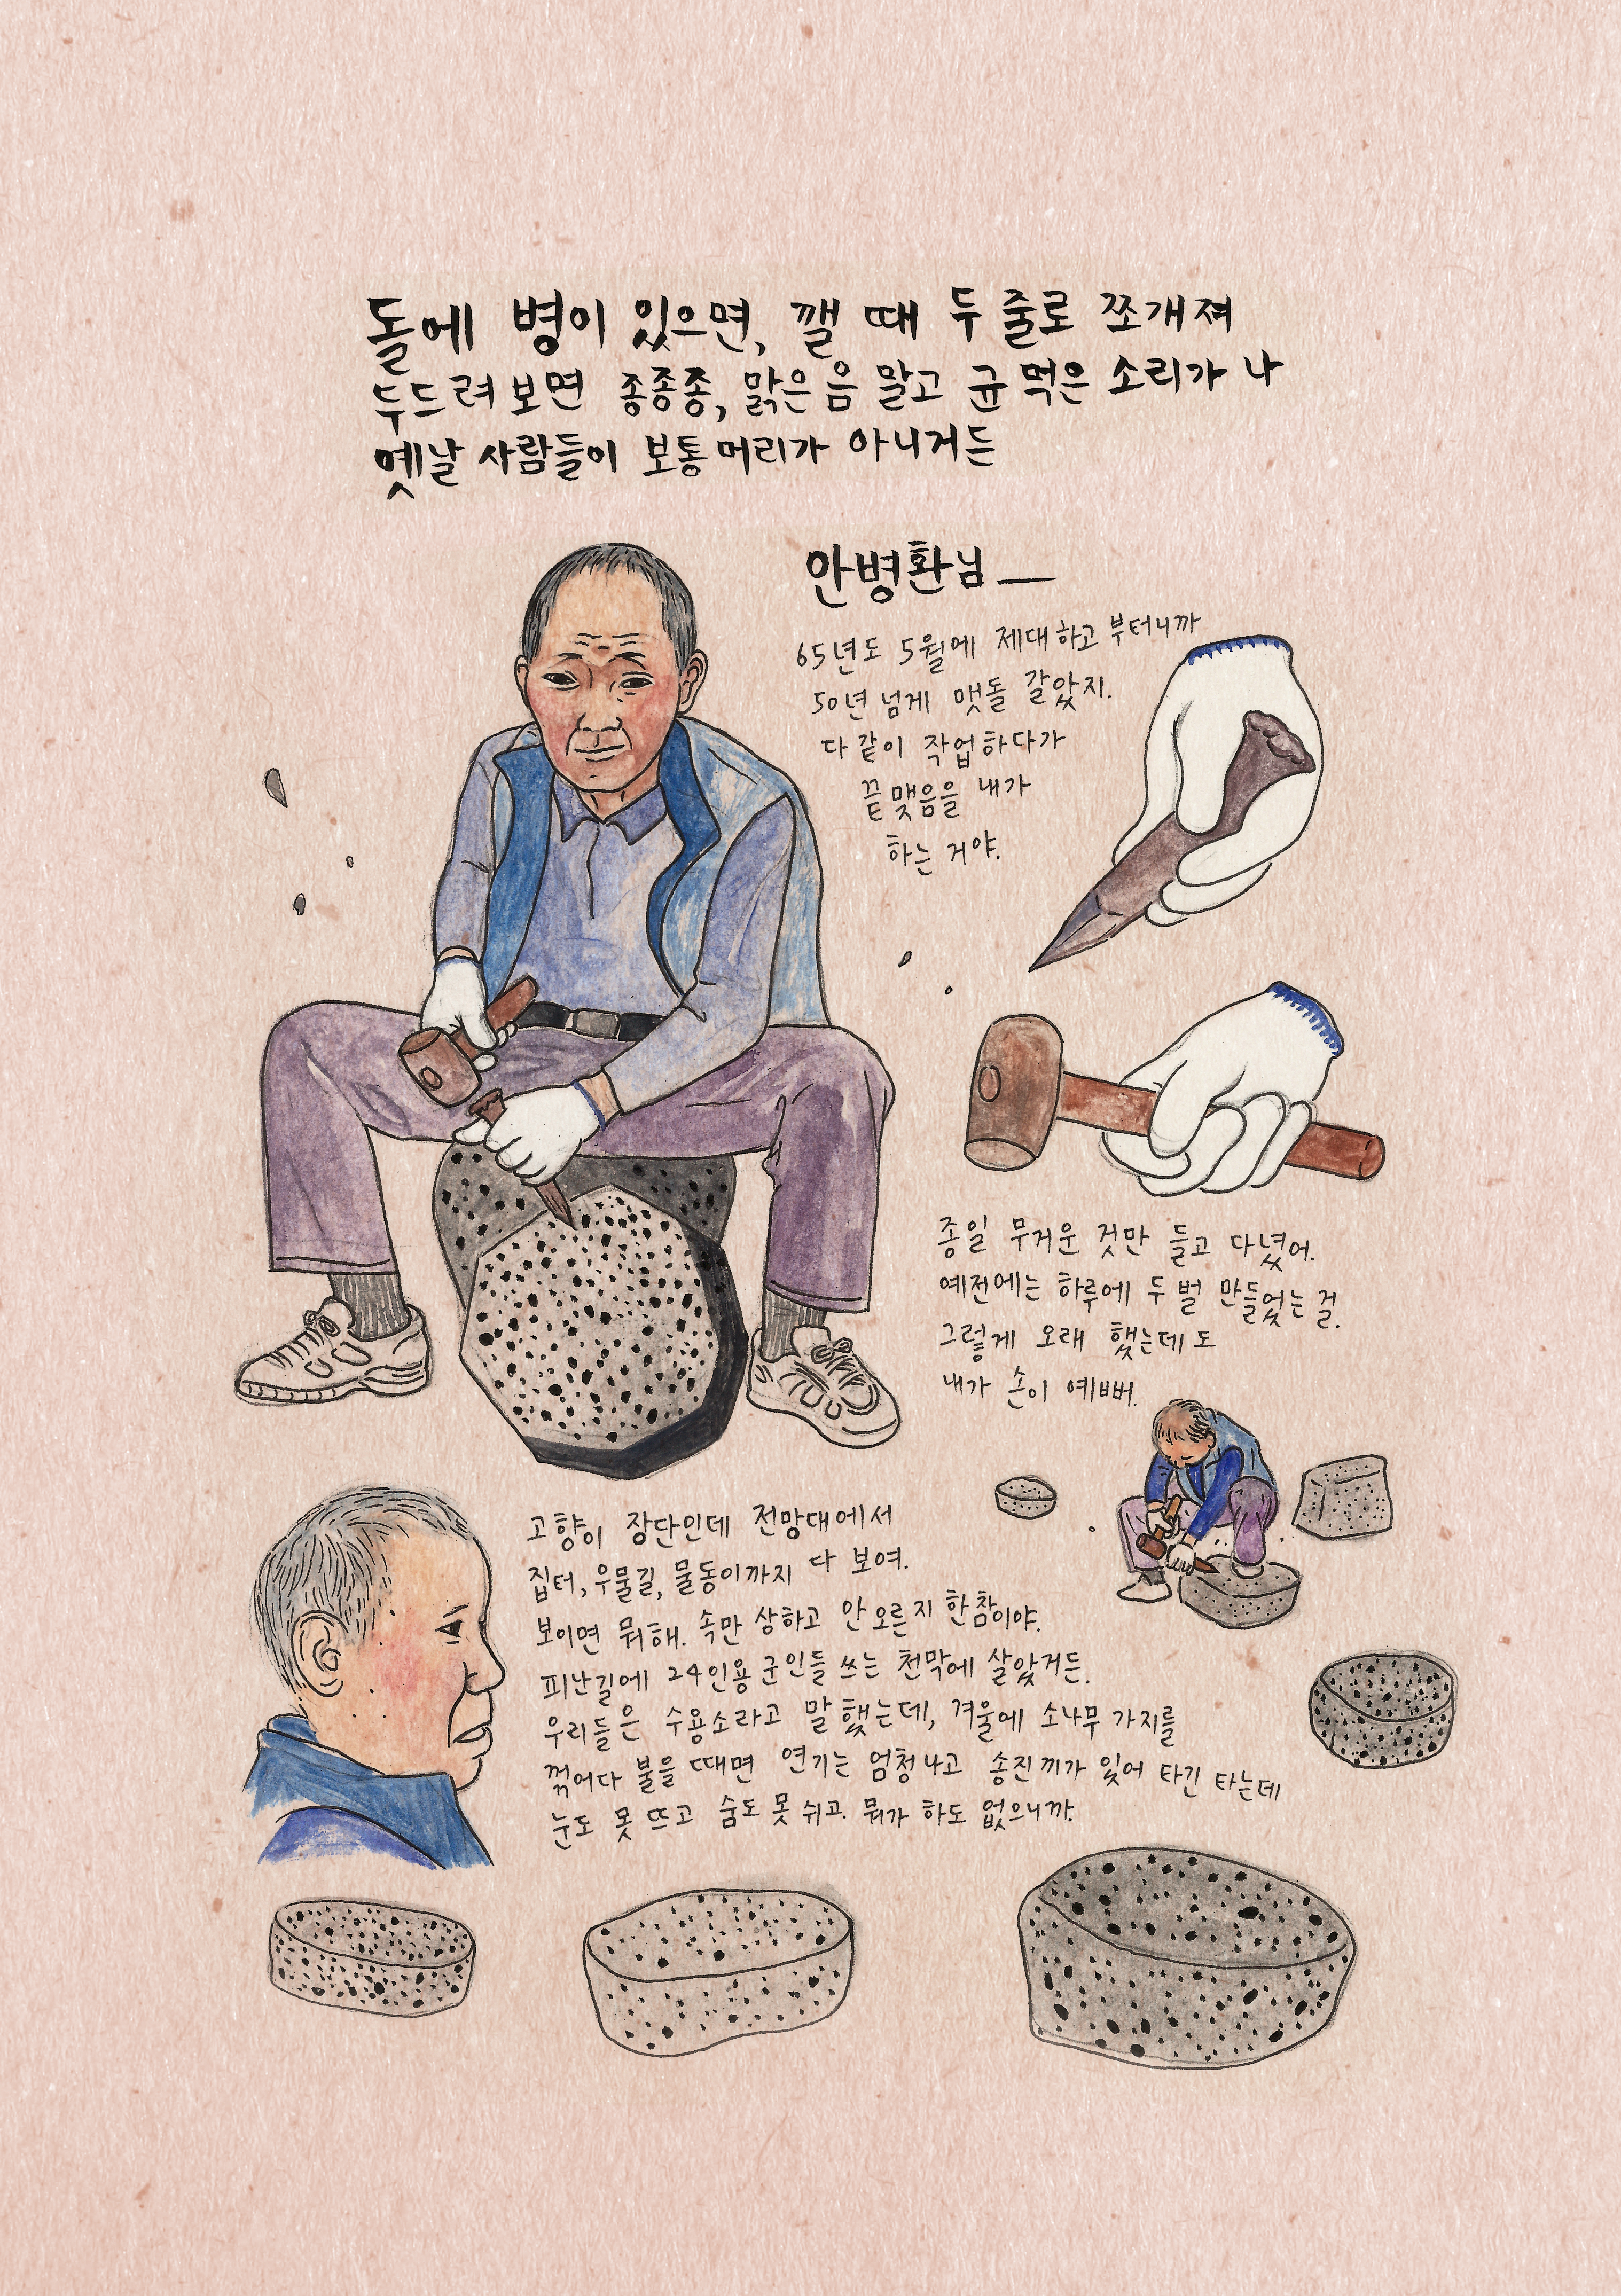 돌에 병이 있으면, 깰 때 두 줄로 쪼개져
두드려 보면 종종종, 맑은 음 말고 균 먹은 소리가 나
옛날 사람들이 보통 머리가 아니거든
안병환님 —
65년도 5월에 제대하고 부터니까
50년 넘게 맷돌 갈았지.
다 같이 작업하다가
끝맺음을 내가
하는 거야.
종일 무거운 것만 들고 다녔어.
예전에는 하루에 두 벌 만들었는 걸.
그렇게 오래 했는데도
내가 손이 예뻐.
고향이 장단인데 전망대에서
집터, 우물길, 물동이까지 다 보여.
보이면 뭐해. 속만 상하고 안 오른지 한참이야.
피난길에 24인용 군인들 쓰는 천막에 살았거든.
우리들은 수용소라고 말했는데, 겨울에 소나무 가지를
꺾어다 불을 때면 연기는 엄청나고 송진끼가 있어 타긴 타는데
눈도 못 뜨고 숨도 못 쉬고. 뭐가 하도 없으니까.